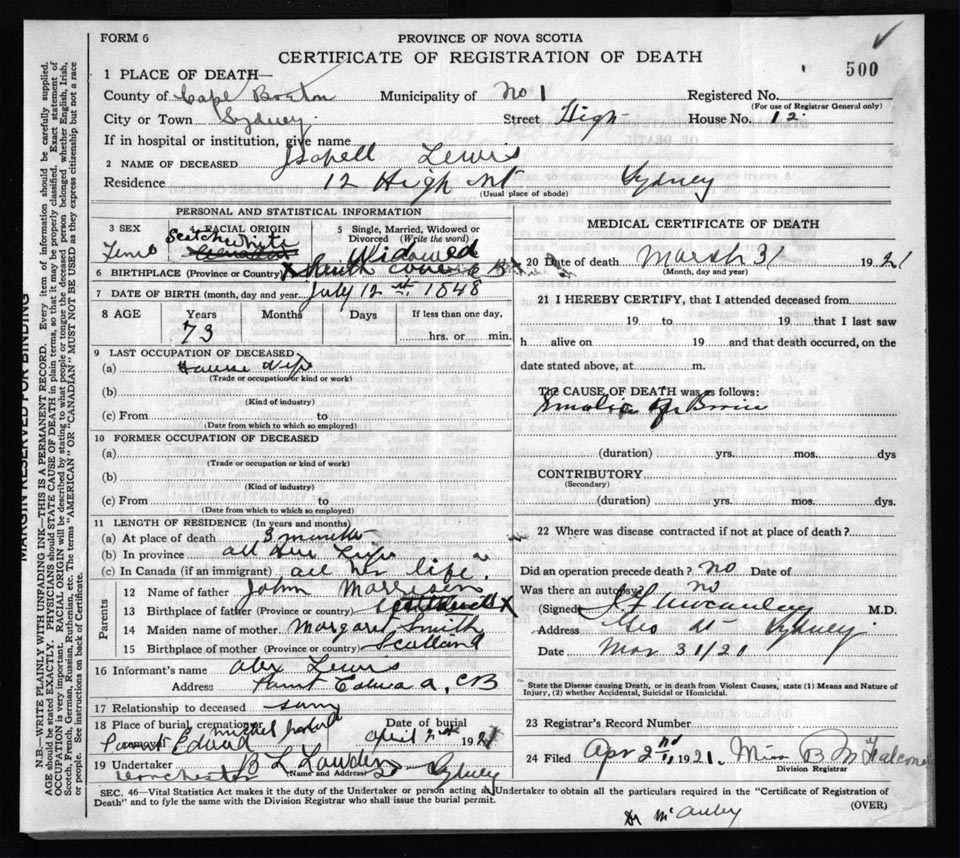 FORM 6
PROVINCE OF NOVA SCOTIA
CERTIFICATE OF REGISTRATION OF DEATH
500
1 PLACE OF DEATH—
County of Cape Breton Municipality of No 1 Registered No.
(For use of Registrar General only)
City or Town Sydney Street High House No. 12
If in hospital or institution, give name
2 NAME OF DECEASED Isabell Lewis
Residence 12 High St Sydney
(Usual place of abode)
PERSONAL AND STATISTICAL INFORMATION
3 SEX 4 RACIAL ORIGIN 5 Single, Married, Widowed or Divorced (Write the word)
Scotch White Widowed
6 BIRTHPLACE (Province or Country)
7 DATE OF BIRTH (month, day and year July 12 st. 1848
8 AGE Years Months Days If less than one day,
73 hrs. or min.
9 LAST OCCUPATION OF DECEASED
(a) House Wife
(Trade or occupation or kind or work)
(b)
(Kind of industry)
(c) From to
(Date from which to which so employed)
10 FORMER OCCUPATION OF DECEASED
(a)
(Trade or occupation or kind of work)
(b)
(Kind of industry)
(c) From to
(Date from which to which so employed)
11 LENGTH OF RESIDENCE (In years and months)
(a) At place of death 3 months
(b) In province all her Life
(c) In Canada (if an immigrant) all her life.
Parents
12 Name of father John Morrison
13 Birthplace of father (Province or country)
14 Maiden name of mother. Margaret Smith
15 Birthplace of mother (Province or country) Scotland
16 Informant's name Alex Lewis
Address CB
17 Relationship to deceased
18 Place of burial, cremation or Date of burial
April 2nd 1921
19 Undertaker B L Lowden Sydney
(Name and Address)
MEDICAL CERTIFICATE OF DEATH
20 Date of death March 31 1921
(Month, day and year)
21 I HEREBY CERTIFY, that I attended deceased from
19 to 19 that I last saw
h alive on 19 and that death occurred, on the
date stated above, at m.
The CAUSE OF DEATH was as follows:
(duration) yrs. mos. dys
CONTRIBUTORY
(Secondary)
(duration) yrs. mos. dys.
22 Where was disease contracted if not at place of death?
Did an operation precede death? no Date of
Was there an autopsy? no
(Signed) M.D.
Address Sydney
Date Mar 31/21
State the Disease causing Death, or in death from Violent Causes, state (1) Means and Nature of
Injury, (2) whether Accidental, Suicidal or Homicidal.
23 Registrar's Record Number
24 Filed Apr 2nd 1921. Miss B
Division Registrar
SEC. 46—Vital Statistics Act makes it the duty of the Undertaker or person acting as Undertaker to obtain all the particulars required in the "Certificate of Registration of
Death" and to fyle the same with the Division Registrar who shall issue the burial permit.
(OVER)
Dr McAuley
MARGIN RESERVED FOR BINDING
N.B.—WRITE PLAINLY WITH UNFADING INK—THIS IS A PERMANENT RECORD. Every item of information should be carefully supplied.
AGE should be stated EXACTLY. PHYSICIANS should STATE CAUSE OF DEATH in plain terms, so that it may be properly classified. Exact statement of
OCCUPATION is very important. RACIAL ORIGIN will be described by stating to what people or tongue the deceased person belonged whether English, Irish,
Scotch, French, German, Russian, Ruthenian, etc. The terms "AMERICAN" OR "CANADIAN" MUST NOT BE USED as they express citizenship but not a race
or people. See instructions on back of Certificate.